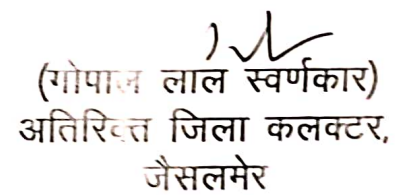 (गोपाल लाल स्वर्णकार)
अतिरिक्त जिला कलक्टर,
जैसलमेर